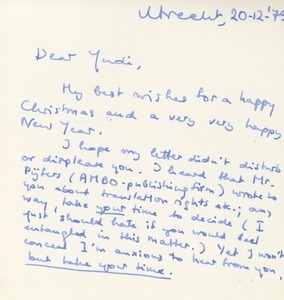 Utrecht, 20-12-'79
Dear Yudi,
My best wishes for a happy
Christmas and a very very happy
New Year.
I hope my letter didn't disturb
or displease you. I heard that Mr.
Pijfers (AMBO-publishing firm) wrote to
you about translation rights etc.; any
way, take your time to decide (I
just should hate if you would feel
entangled in this matter.) Yet I won't
conceal I'm anxious to hear from you,
but take your time.